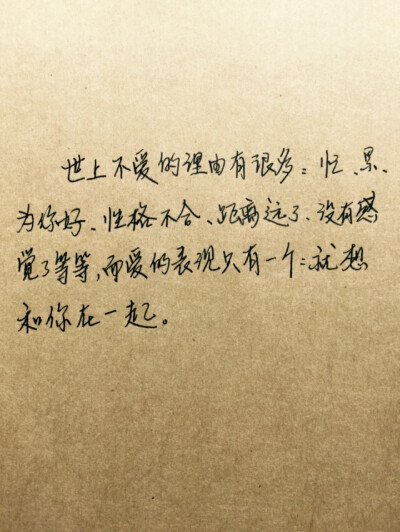 世上不爱的理由有很多：忙、累、
为你好、性格不合、距离远了、没有感
觉了等等，而爱的表现只有一个：就想
和你在一起。